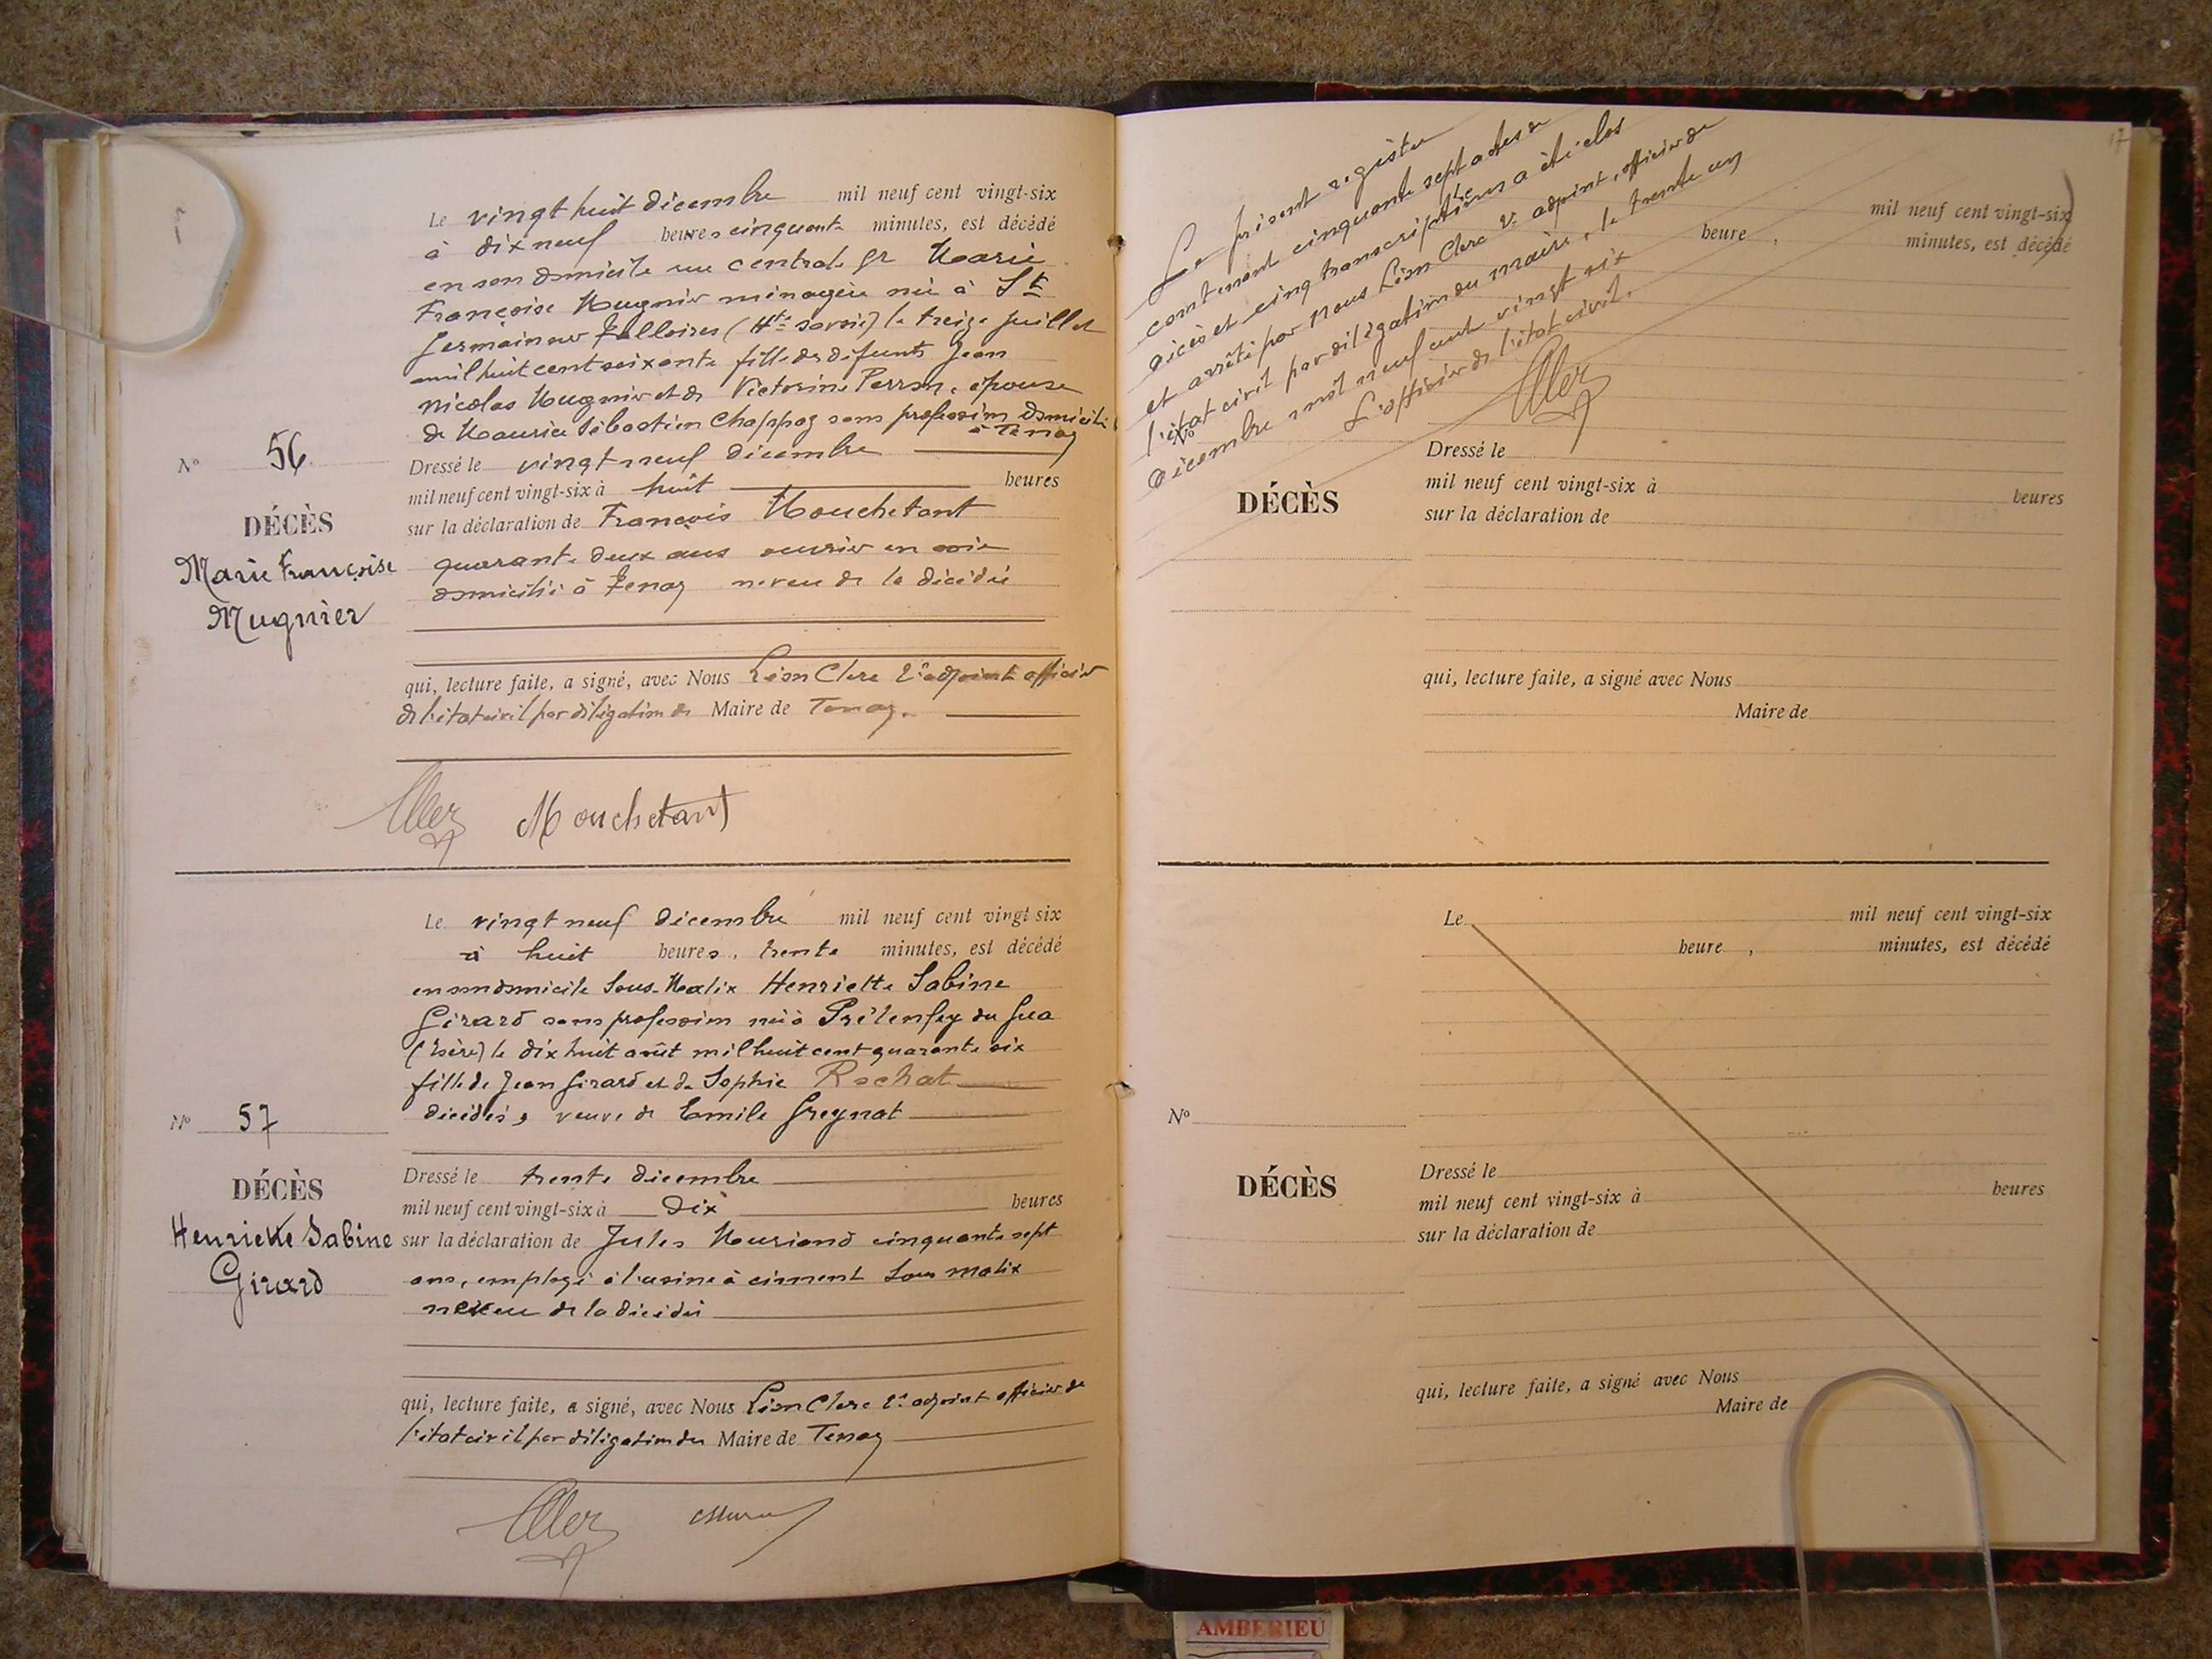 Le vingt huit décembre mil neuf cent vingt-six
à dix neuf heures cinquante minutes, est décédé
en son domicile rue centrale Marie
Françoise Mugnier ménagère née à St
Germain sur Talloires (Hte savoie) le treize juillet
mil huit cent soixante fille des défunts Jean
Nicolas Mugnier et de Victorine Perron, épouse
de Maurice Sébastien Chappaz sans profession domicilié
à Tenay
No 56
Dressé le vingt neuf décembre
mil neuf cent vingt-six à huit heures
DÉCÈS
Marie Françoise
Mugnier
sur la déclaration de François Mouchetant
quarante deux ans ouvrier en soie
domicilié à Tenay neveu de la décédée
qui, lecture faite, a signé, avec Nous Léon Clerc 2e adjoint officier
de l'état civil par délégation du Maire de Tenay.
Clerc Mouchetant
Le vingt neuf décembre mil neuf cent vingt six
à huit heures, trente minutes, est décédé
en son domicile Sous-Malix Henriette Sabine
Girard sans profession née à Prélenfey du Gua
(Isère) le dix huit août mil huit cent quarante six
fille de Jean Girard et de Sophie Rochat
décédés, veuve de Emile Greynat
No 57
Dressé le trente décembre
mil neuf cent vingt-six à Dix heures
DÉCÈS
Henriette Sabine
Girard
sur la déclaration de Jules Mouriand cinquante sept
ans, employé à l'usine à ciment Sous Malix
neveu de la décédée
qui, lecture faite, a signé, avec Nous Léon Clerc 2e adjoint officier de
l'état civil par délégation du Maire de Tenay
Clerc
17
Le présent registre
contenant cinquante sept actes de
décès et cinq transcriptions a été clos
et arrêté par nous Léon Clerc 2e adjoint, officier de
l'état civil par délégation du maire, le trente un
décembre mil neuf cent vingt six
L'officier de l'état civil.
Clerc
mil neuf cent vingt-six
heure, minutes, est décédé
No
Dressé le
mil neuf cent vingt-six à heures
sur la déclaration de
DÉCÈS
qui, lecture faite, a signé avec Nous
Maire de
Le mil neuf cent vingt-six
heure, minutes, est décédé
No
Dressé le
mil neuf cent vingt-six à heures
sur la déclaration de
DÉCÈS
qui, lecture faite, a signé avec Nous
Maire de
AMBERIEU